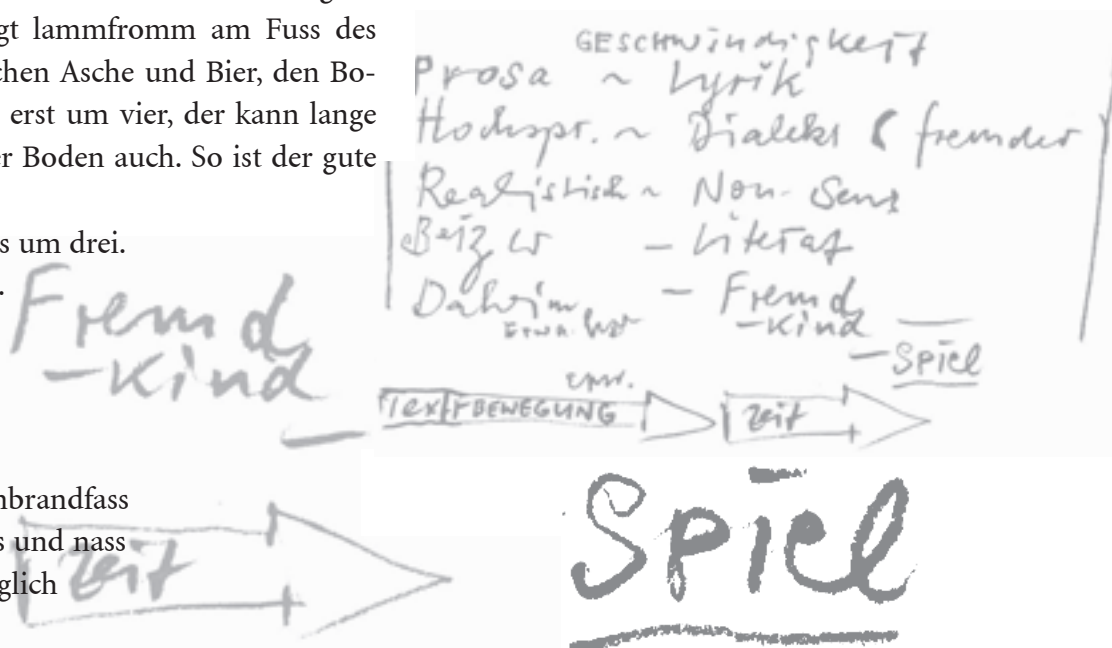 gt lammfromm am Fuss des
chen Asche und Bier, den Bo-
erst um vier, der kann lange
er Boden auch. So ist der gute
s um drei.
nbrandfass
s und nass
glich
GESCHWindigkeit
Prosa ~ Lyrik
Hochspr. ~ Dialekt ( fremder
Realistisch ~ Non-Sens
Beizer – Literat
Daheim – Fremd
-Kind
– Spiel
Text BEWEGUNG
Zeit
Fremd
-Kind
Zeit
Spiel